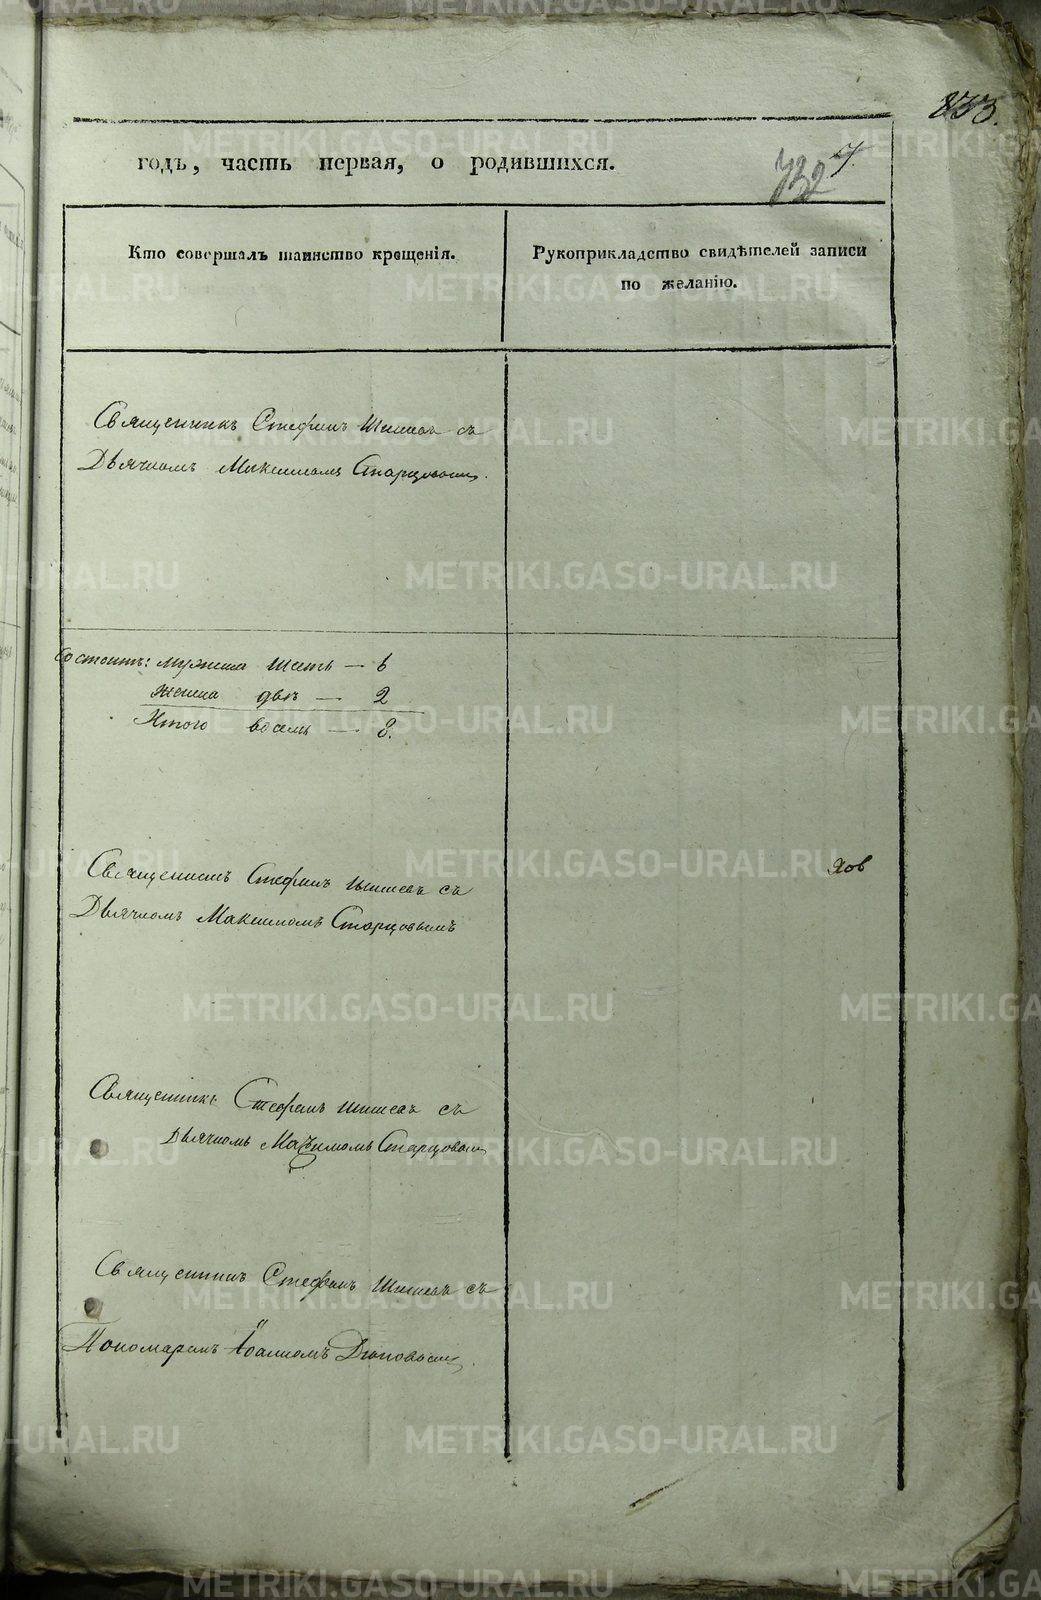 833.
годъ, часть первая, о родившихся.
732 7.
Кто совершалъ таинство крещенія.
Рукоприкладство свидѣтелей записи
по желанію.
Священникъ Стефанъ Шишевъ съ
Дьячкомъ Максимомъ Старцовымъ.
Состоитъ: мужеска шесть — 6
женска двѣ — 2
Итого восемь — 8.
Священникъ Стефанъ Шишевъ съ
Дьячкомъ Максимомъ Старцовымъ
Священникъ Стефанъ Шишевъ съ
Дьячкомъ Максимомъ Старцовымъ
Священникъ Стефанъ Шишевъ съ
Пономаремъ Іоанномъ
METRIKI.GASO-URAL.RU